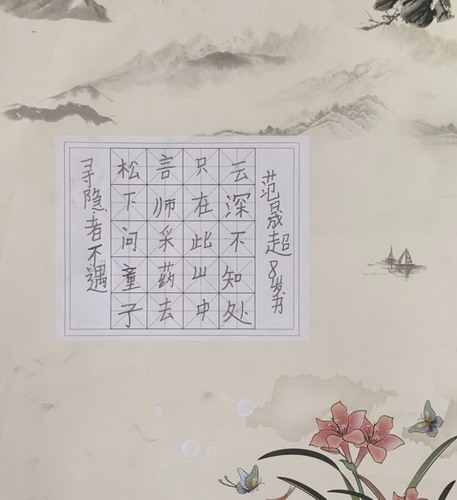 寻隐者不遇
松下问童子
言师采药去
只在此山中
云深不知处
范晟超8岁书